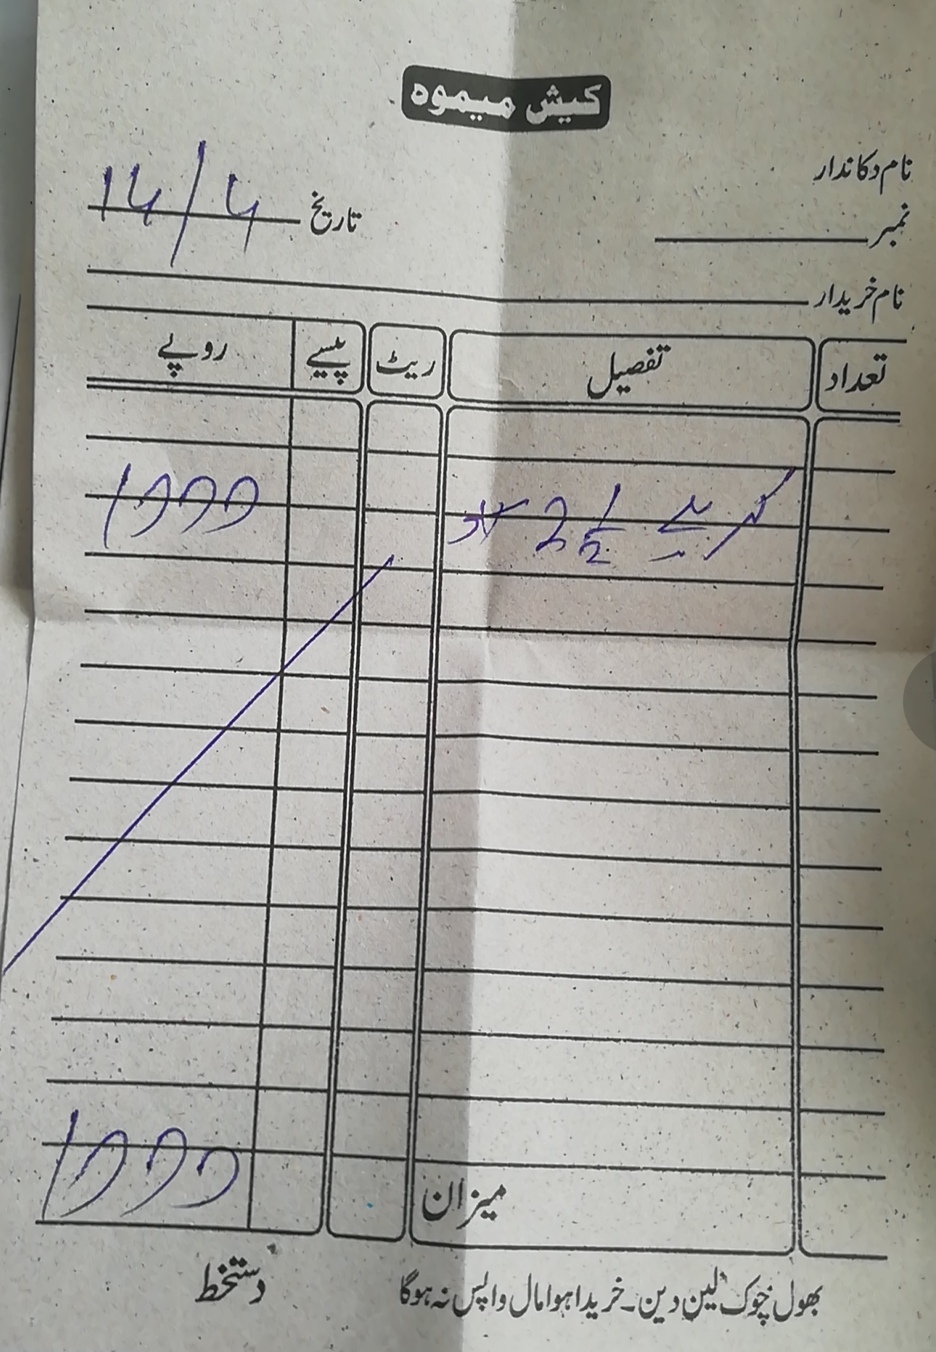 کیش میمو
نام دکاندار
نمبر
تاریخ 14/4
نام خریدار
تعداد تفصیل ریٹ پیسے روپے
کریلے 2 1/2 1000
میزان 1000
بھول چوک لین دین۔ خریدا ہوا مال واپس نہ ہوگا
دستخط